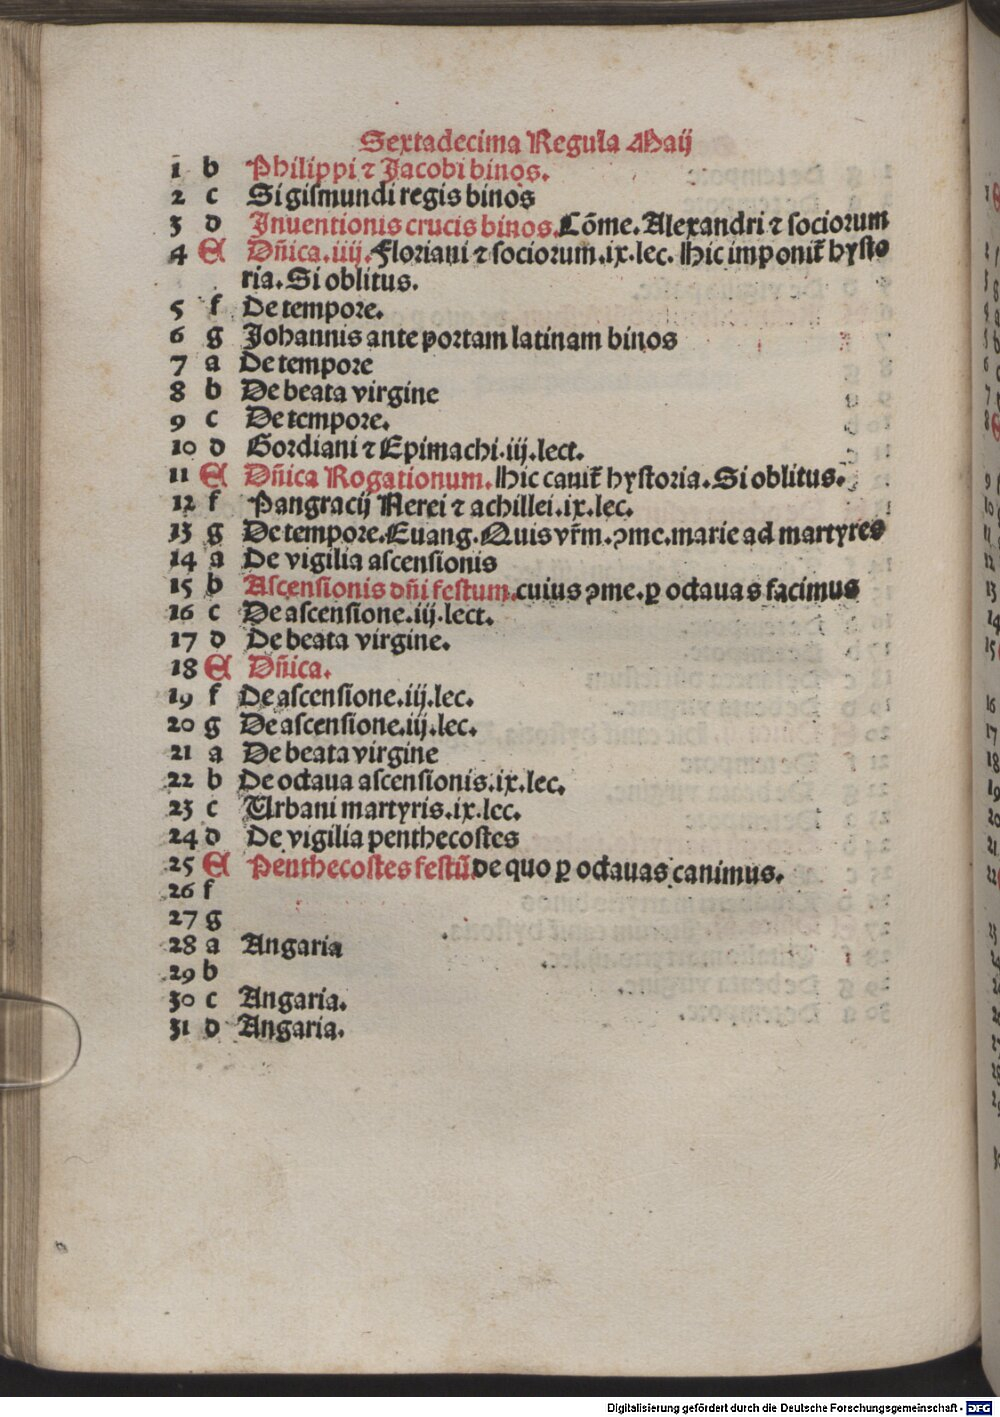 Sextadecima Regula Maij
1 b Philippi ⁊ Jacobi binos.
2 c Sigismundi regis binos
3 d Inuentionis crucis binos. Cōme. Alexandri ⁊ sociorum
4 A Dn̄ica. iiij. Floriani ⁊ sociorum. ix. lec. Hic imponit̄ hysto
ria. Si oblitus.
5 f De tempore.
6 g Johannis ante portam latinam binos
7 a De tempore
8 b De beata virgine
9 c De tempore.
10 d Gordiani ⁊ Epimachi. iij. lect.
11 A Dn̄ica Rogationum. Hic canit̄ hystoria. Si oblitus.
12 f Pangracij Nerei ⁊ achillei. ix. lec.
13 g De tempore. Euang. Quis vr̄m. ꝯme. marie ad martyres
14 a De vigilia ascensionis
15 b Ascensionis dn̄i festum. cuius ꝯme. ꝑ octauas facimus
16 c De ascensione. iij. lect.
17 d De beata virgine.
18 A Dn̄ica.
19 f De ascensione. iij. lec.
20 g De ascensione. iij. lec.
21 a De beata virgine
22 b De octaua ascensionis. ix. lec.
23 c Urbani martyris. ix. lec.
24 d De vigilia penthecostes
25 A Penthecostes festū de quo ꝑ octauas canimus.
26 f
27 g
28 a Angaria
29 b
30 c Angaria.
31 d Angaria.
Digitalisierung gefördert durch die Deutsche Forschungsgemeinschaft - DFG